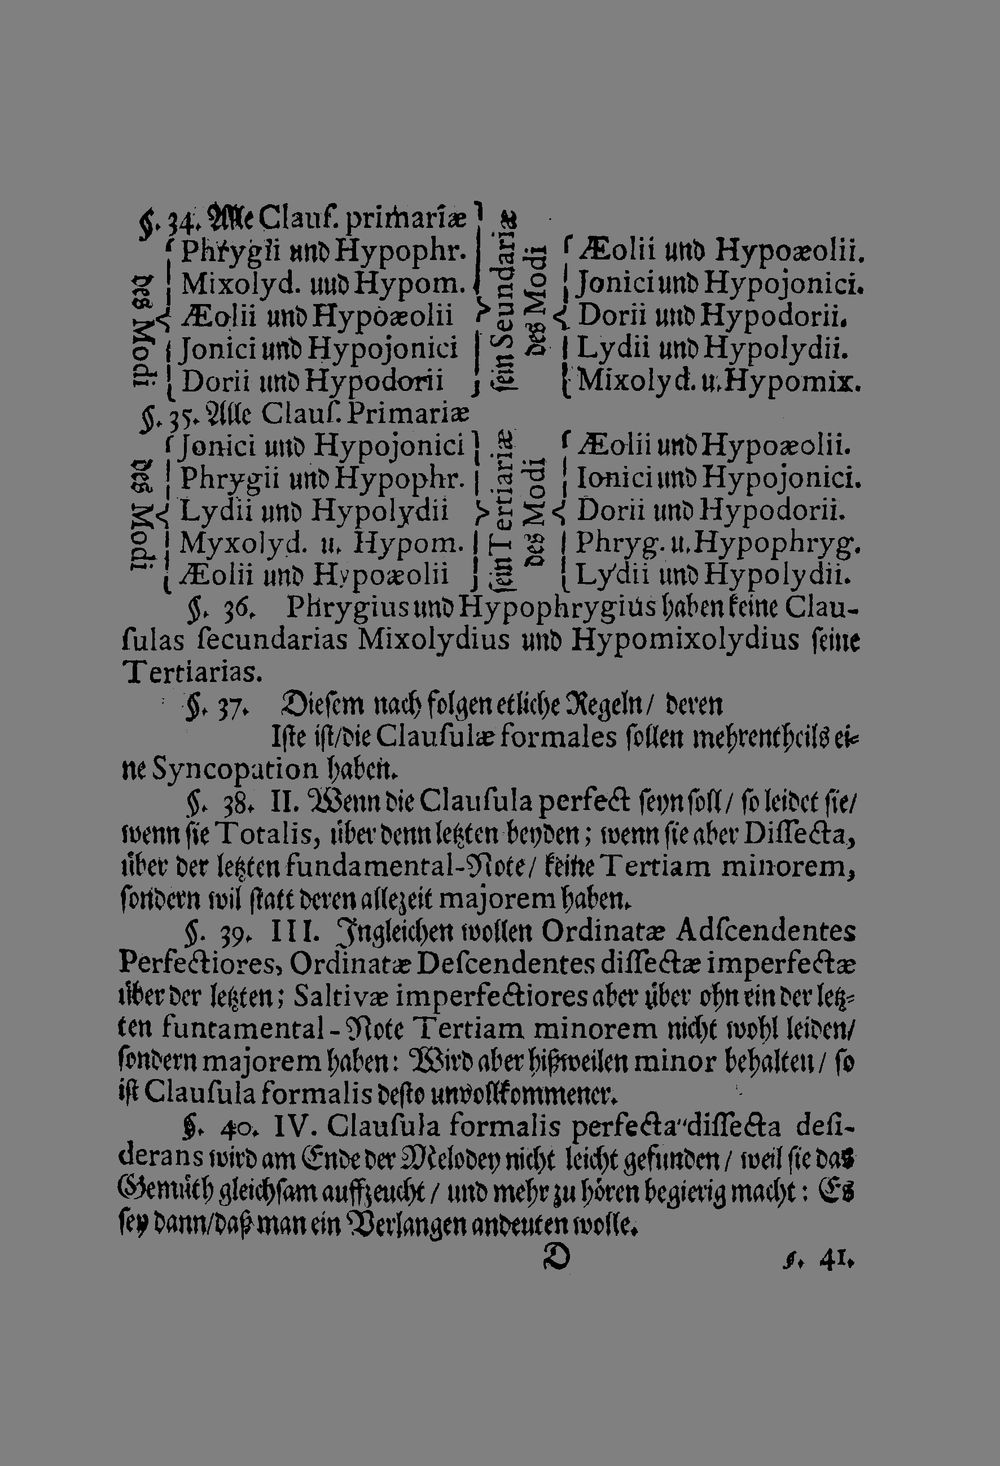 §. 34. Alle Clauſ. primariæ
des Modi
Phrygii und Hypophr.
Mixolyd. und Hypom.
Æolii und Hypoæolii
Jonici und Hypojonici
Dorii und Hypodorii
ſein Seundariæ
des Modi
Æolii und Hypoæolii.
Jonici und Hypojonici.
Dorii und Hypodorii.
Lydii und Hypolydii.
Mixolyd. u. Hypomix.
§. 35. Alle Clauſ. Primariæ
des Modi
Jonici und Hypojonici
Phrygii und Hypophr.
Lydii und Hypolydii
Myxolyd. u. Hypom.
Æolii und Hypoæolii
ſein Tertiariæ
des Modi
Æolii und Hypoæolii.
Ionici und Hypojonici.
Dorii und Hypodorii.
Phryg. u. Hypophryg.
Lydii und Hypolydii.
§. 36. Phrygius und Hypophrygius haben keine Clau-
ſulas ſecundarias Mixolydius und Hypomixolydius ſeine
Tertiarias.
§. 37. Dieſem nach folgen etliche Regeln / deren
Iſte iſt / die Clauſulæ formales ſollen mehrentheils ei-
ne Syncopation haben.
§. 38. II. Wenn die Clauſula perfect ſeyn ſoll / ſo leidet ſie /
wenn ſie Totalis, über denn letzten beyden; wenn ſie aber Diſſecta,
über der letzten fundamental-Note / keine Tertiam minorem,
ſondern wil ſtatt deren allezeit majorem haben.
§. 39. III. Ingleichen wollen Ordinatæ Adſcendentes
Perfectiores, Ordinatæ Deſcendentes diſſectæ imperfectæ
über der letzten; Saltivæ imperfectiores aber über ohn ein der letz-
ten funtamental-Note Tertiam minorem nicht wohl leiden /
ſondern majorem haben: Wird aber bißweilen minor behalten / ſo
iſt Clauſula formalis deſto unvollkommener.
§. 40. IV. Clauſula formalis perfecta diſſecta deſi-
derans wird am Ende der Melodey nicht leicht gefunden / weil ſie das
Gemüth gleichſam auffzeucht / und mehr zu hören begierig macht: Es
ſey dann / daß man ein Verlangen andeuten wolle.
D
§. 41.